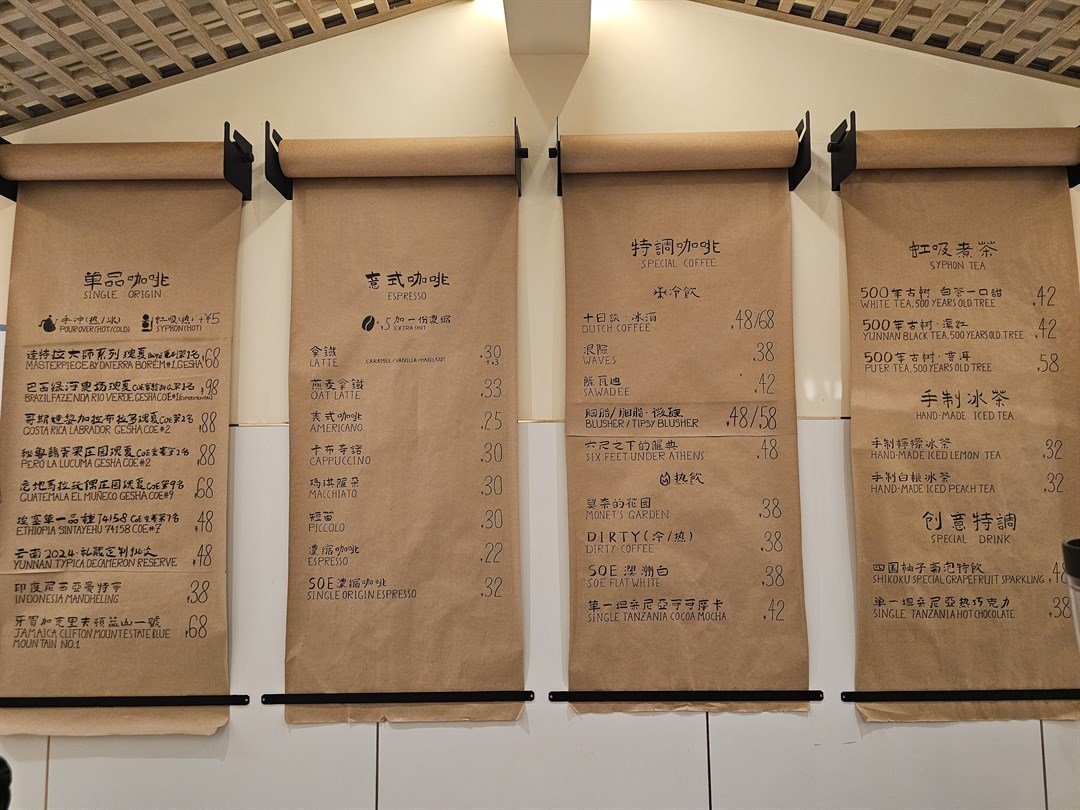 单品咖啡
SINGLE ORIGIN
手冲(热/冰)
POUROVER(HOT/COLD)
虹吸(热)+¥5
SYPHON(HOT)
达特拉大师系列瑰夏 ¥68
MASTERPIECE.BY DATERRA BOREM#1.GESHA
巴西绿河庄场瑰夏 ¥98
BRAZIL FAZENDA RIO VERDE.GESHA COE#1(EXPERIMENTAL)
哥斯达黎加拉布拉多瑰夏COE第2名 ¥88
COSTA RICA LABRADOR GESHA COE#2
¥88
PERO LA LUCUMA GESHA COE#2
危地马拉玩偶庄园瑰夏COE第9名 ¥68
GUATEMALA EL MUÑECO GESHA COE#9
埃塞單一品種74158 COE 第7名 ¥48
ETHIOPIA SINTAYEHU 74158 COE#7
云南2024·私藏定制批次 ¥48
YUNNAN TYPICA DECAMERON RESERVE
印度尼西亞曼特寧 ¥38
INDONESIA MANDHELING
牙買加克里夫頓蓝山一號 ¥68
JAMAICA CLIFTON MOUNT ESTATE BLUE
MOUNTAIN NO.1
意式咖啡
ESPRESSO
¥5加一份濃缩
EXTRA SHOT
拿鐵 ¥30
LATTE CARAMEL/VANILLA/HAZELNUT +¥3
燕麦拿鐵 ¥33
OAT LATTE
美式咖啡 ¥25
AMERICANO
卡布奇諾 ¥30
CAPPUCCINO
瑪琪雅朵 ¥30
MACCHIATO
短笛 ¥30
PICCOLO
濃缩咖啡 ¥22
ESPRESSO
SOE濃缩咖啡 ¥32
SINGLE ORIGIN ESPRESSO
特調咖啡
SPECIAL COFFEE
冷飲
十日談·冰滴 ¥48/68
DUTCH COFFEE
浪險 ¥38
WAVES
薩瓦迪 ¥42
SAWADEE
胭脂/胭脂·微醺 ¥48/58
BLUSHER/TIPSY BLUSHER
六尺之下的雅典 ¥48
SIX FEET UNDER ATHENS
热飲
莫奈的花園 ¥38
MONET'S GARDEN
DIRTY(冷/热) ¥38
DIRTY COFFEE
SOE 澳瀬白 ¥38
SOE FLAT WHITE
單一坦桑尼亞可可摩卡 ¥42
SINGLE TANZANIA COCOA MOCHA
虹吸煮茶
SYPHON TEA
500年古树·白茶一口甜 ¥42
WHITE TEA, 500 YEARS OLD TREE
500年古树·滇红 ¥42
YUNNAN BLACK TEA, 500 YEARS OLD TREE
500年古树·普洱 ¥58
PU'ER TEA, 500 YEARS OLD TREE
手制冰茶
HAND-MADE ICED TEA
手制檸檬冰茶 ¥32
HAND-MADE ICED LEMON TEA
手制白桃冰茶 ¥32
HAND-MADE ICED PEACH TEA
创意特調
SPECIAL DRINK
四国柚子氣泡特飲 ¥48
SHIKOKU SPECIAL GRAPEFRUIT SPARKLING
單一坦桑尼亞热巧克力 ¥38
SINGLE TANZANIA HOT CHOCOLATE